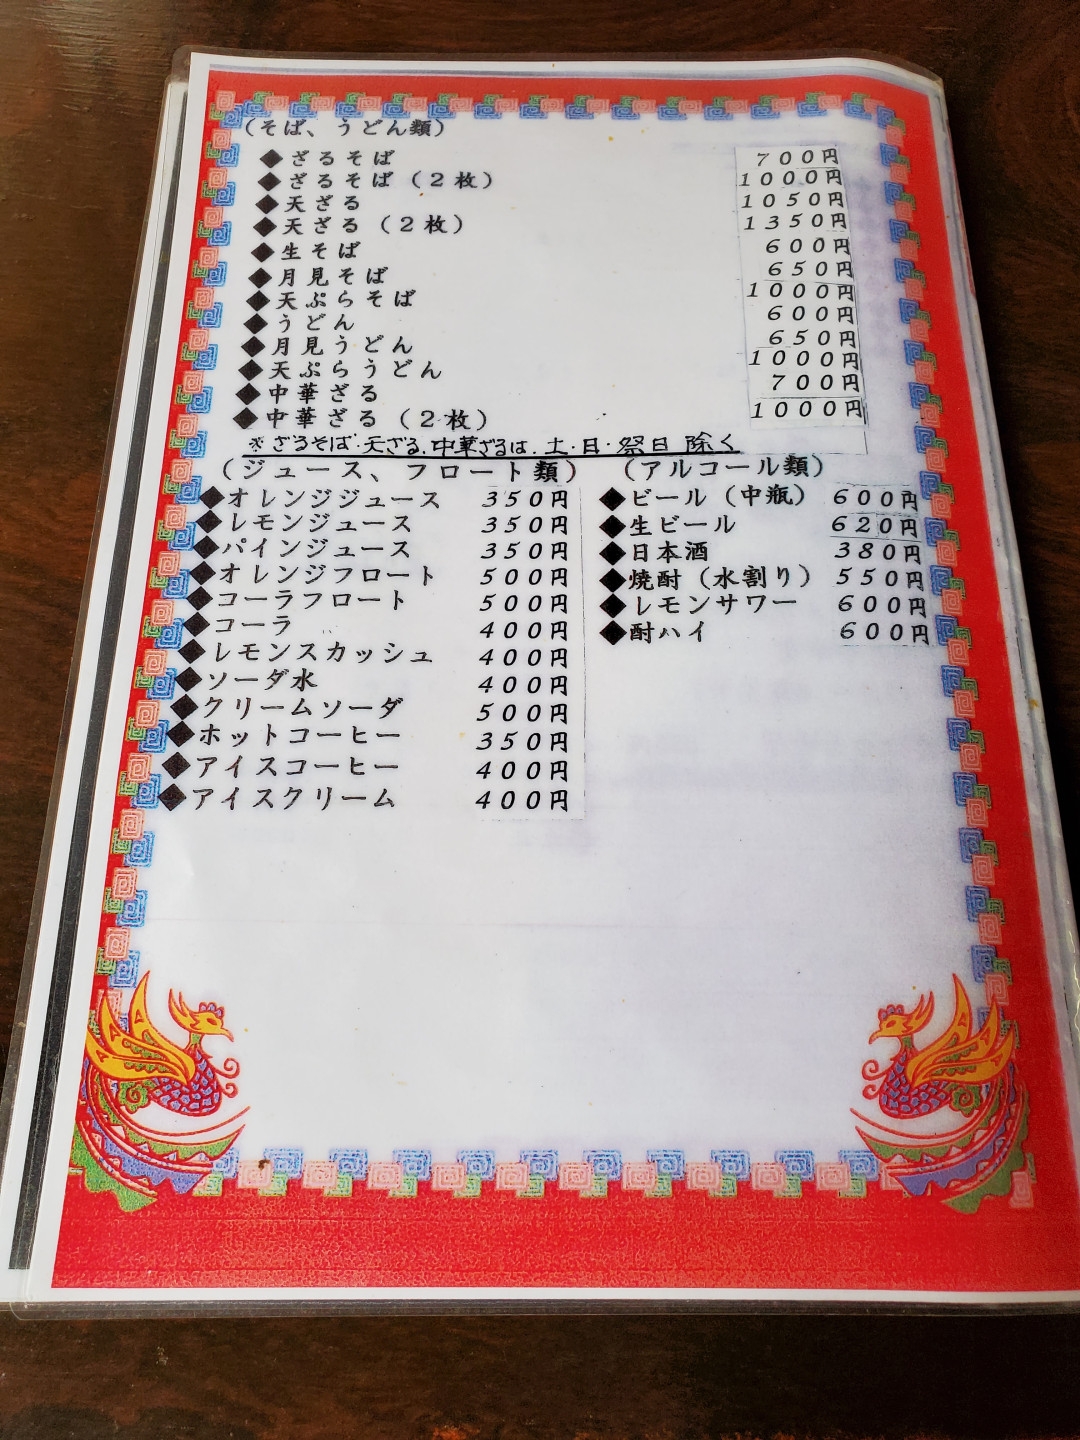 (そば、うどん類)
◆ざるそば 700円
◆ざるそば(2枚) 1000円
◆天ざる 1050円
◆天ざる(2枚) 1350円
◆生そば 600円
◆月見そば 650円
◆天ぷらそば 1000円
◆うどん 600円
◆月見うどん 650円
◆天ぷらうどん 1000円
◆中華ざる 700円
◆中華ざる(2枚) 1000円
※ざるそば・天ざる、中華ざるは、土・日・祭日 除く
(ジュース、フロート類)
◆オレンジジュース 350円
◆レモンジュース 350円
◆パインジュース 350円
◆オレンジフロート 500円
◆コーラフロート 500円
◆コーラ 400円
◆レモンスカッシュ 400円
◆ソーダ水 400円
◆クリームソーダ 500円
◆ホットコーヒー 350円
◆アイスコーヒー 400円
◆アイスクリーム 400円
(アルコール類)
◆ビール(中瓶) 600円
◆生ビール 620円
◆日本酒 380円
◆焼酎(水割り) 550円
◆レモンサワー 600円
◆酎ハイ 600円